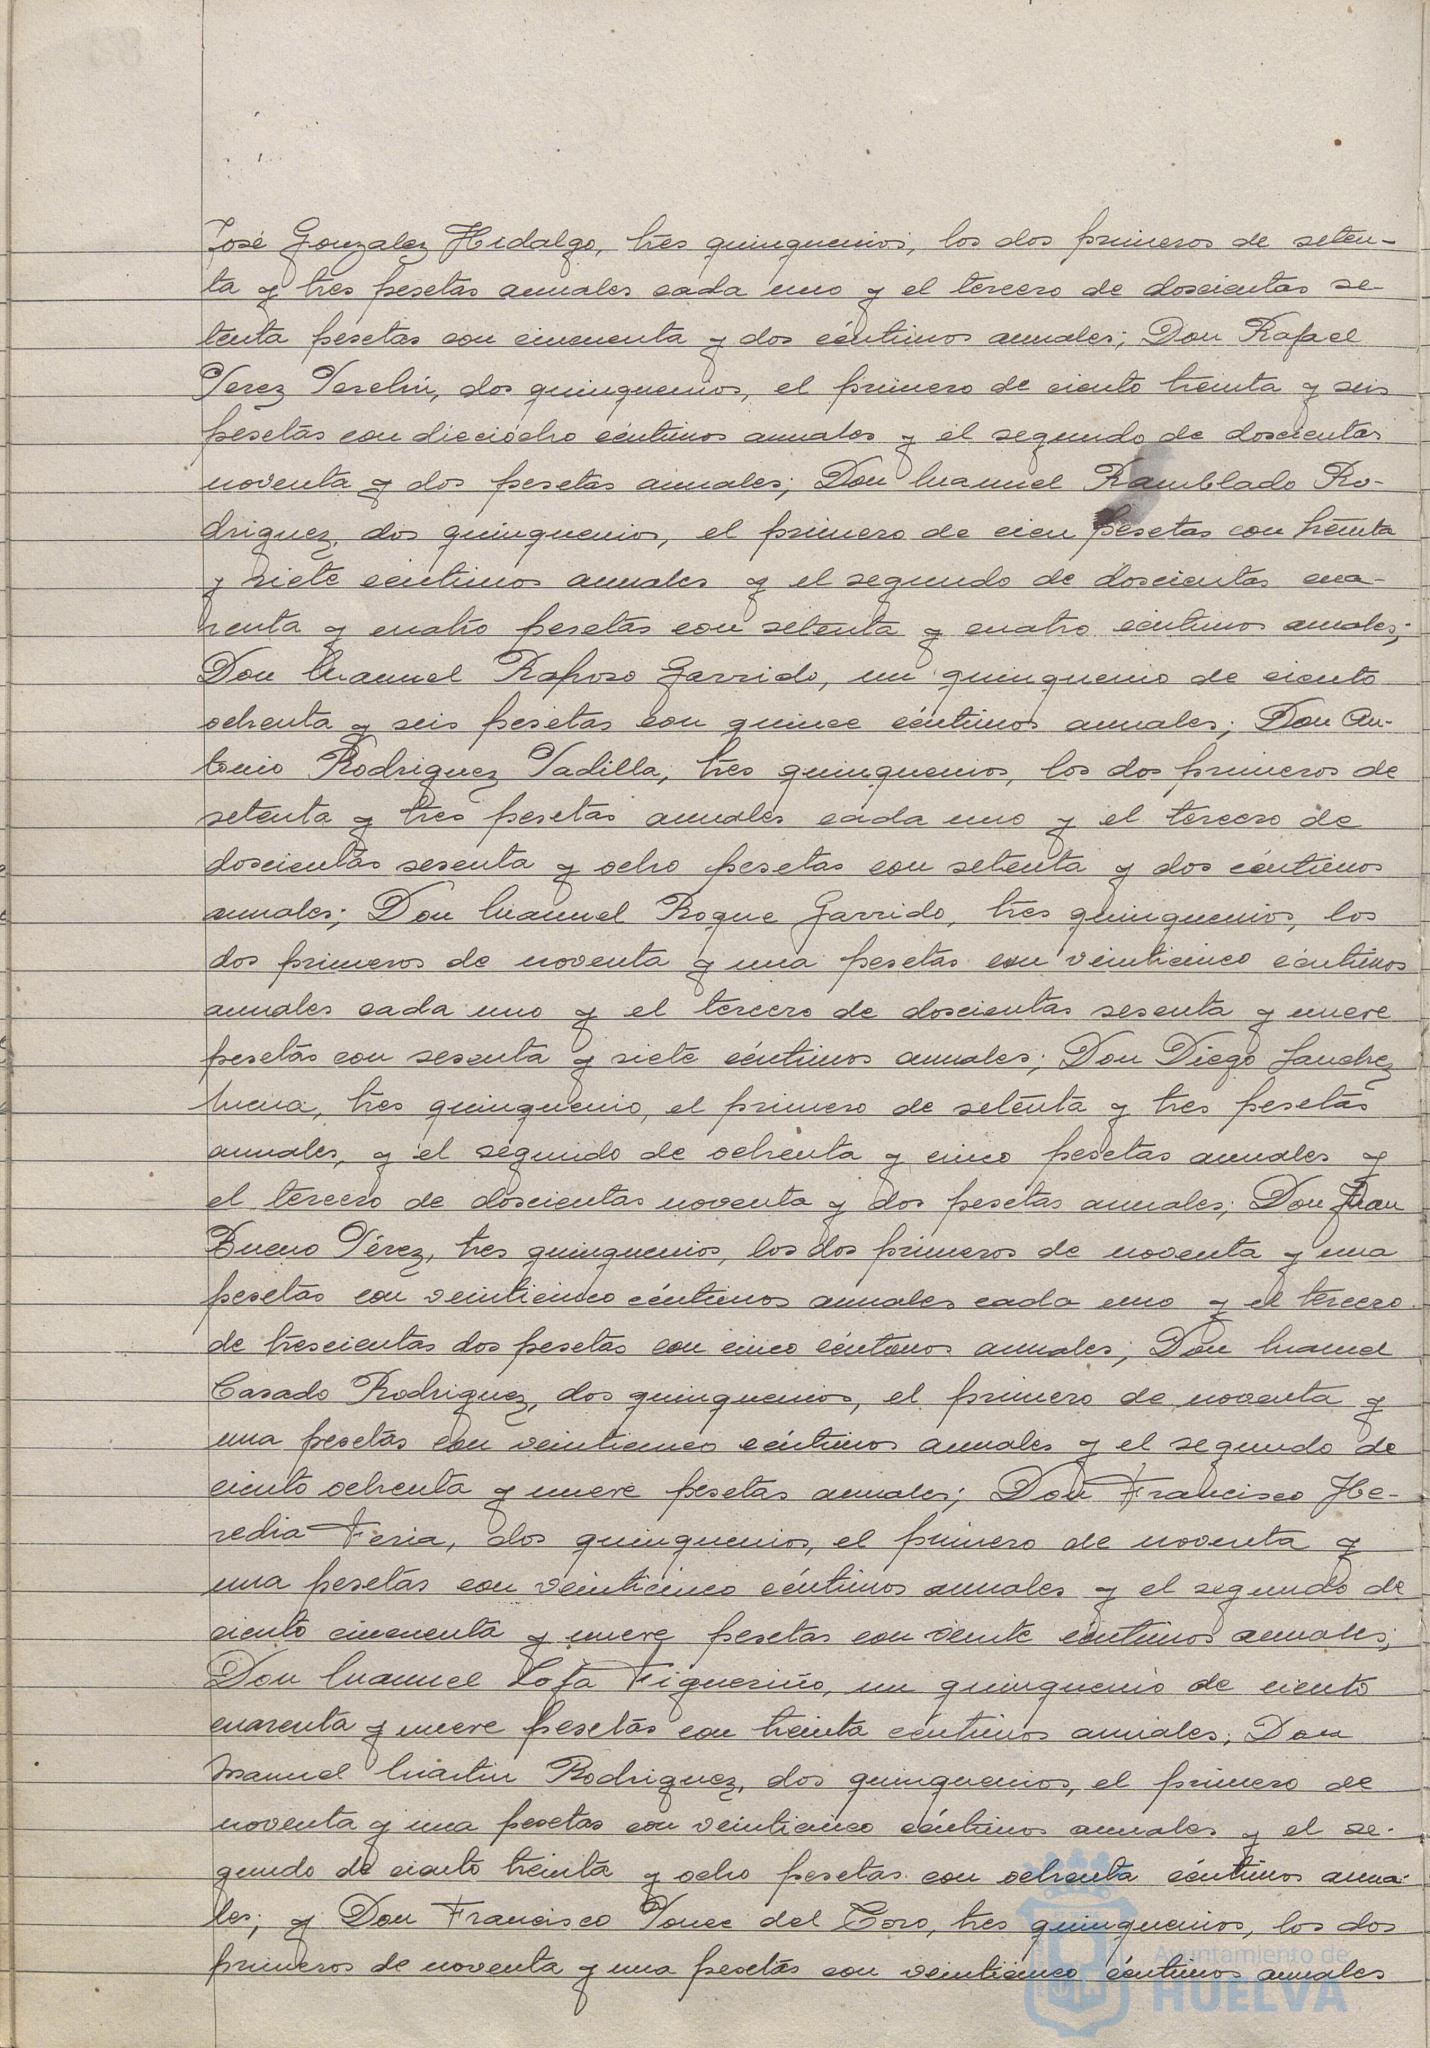 José Gonzalez Hidalgo, tres quinquenios, los dos primeros de seten-
ta y tres pesetas anuales cada uno y el tercero de doscientas se-
tenta pesetas con cincuenta y dos céntimos anuales; Don Rafael
Perez Perelín, dos quinquenios, el primero de ciento treinta y seis
pesetas con dieciocho céntimos anuales y el segundo de doscientas
noventa y dos pesetas anuales; Don Manuel Ramblado Ro-
driguez, dos quinquenios, el primero de cien pesetas con treinta
y siete centimos anuales y el segundo de doscientas cua-
renta y cuatro pesetas con setenta y cuatro centimos anuales;
Don Manuel Raposo Garrido, un quinquenio de ciento
ochenta y seis pesetas con quince céntimos anuales; Don An-
tonio Rodriguez Padilla, tres quinquenios, los dos primeros de
setenta y tres pesetas anuales cada uno y el tercero de
doscientas sesenta y ocho pesetas con setenta y dos céntimos
anuales; Don Manuel Roque Garrido, tres quinquenios, los
dos primeros de noventa y una pesetas con veinticinco céntimos
anuales cada uno y el tercero de doscientas sesenta y nueve
pesetas con sesenta y siete céntimos anuales; Don Diego Sanchez
Mena, tres quinquenio, el primero de setenta y tres pesetas
anuales, y el segundo de ochenta y cinco pesetas anuales y
el tercero de doscientas noventa y dos pesetas anuales; Don Juan
Bueno Pérez, tres quinquenios, los dos primeros de noventa y una
pesetas con veinticinco céntimos anuales cada uno y el tercero
de trescientas dos pesetas con cinco céntimos anuales; Don Manuel
Casado Rodriguez, dos quinquenios, el primero de noventa y
una pesetas con veinticinco céntimos anuales y el segundo de
ciento ochenta y nueve pesetas anuales; Don Francisco He-
redia Feria, dos quinquenios, el primero de noventa y
una pesetas con veinticinco céntimos anuales y el segundo de
ciento cincuenta y nueve pesetas con veinte céntimos anuales;
Don Manuel Lofa Figueriño, un quinquenio de ciento
cuarenta y nueve pesetas con treinta céntimos anuales; Don
Manuel Martin Rodriguez, dos quinquenios, el primero de
noventa y una pesetas con veinticinco céntimos anuales y el se-
gundo de ciento treinta y ocho pesetas con ochenta céntimos anua-
les; y Don Francisco Ponce del Toro, tres quinquenios, los dos
primeros de noventa y una pesetas con veinticinco céntimos anuales
Ayuntamiento de
HUELVA